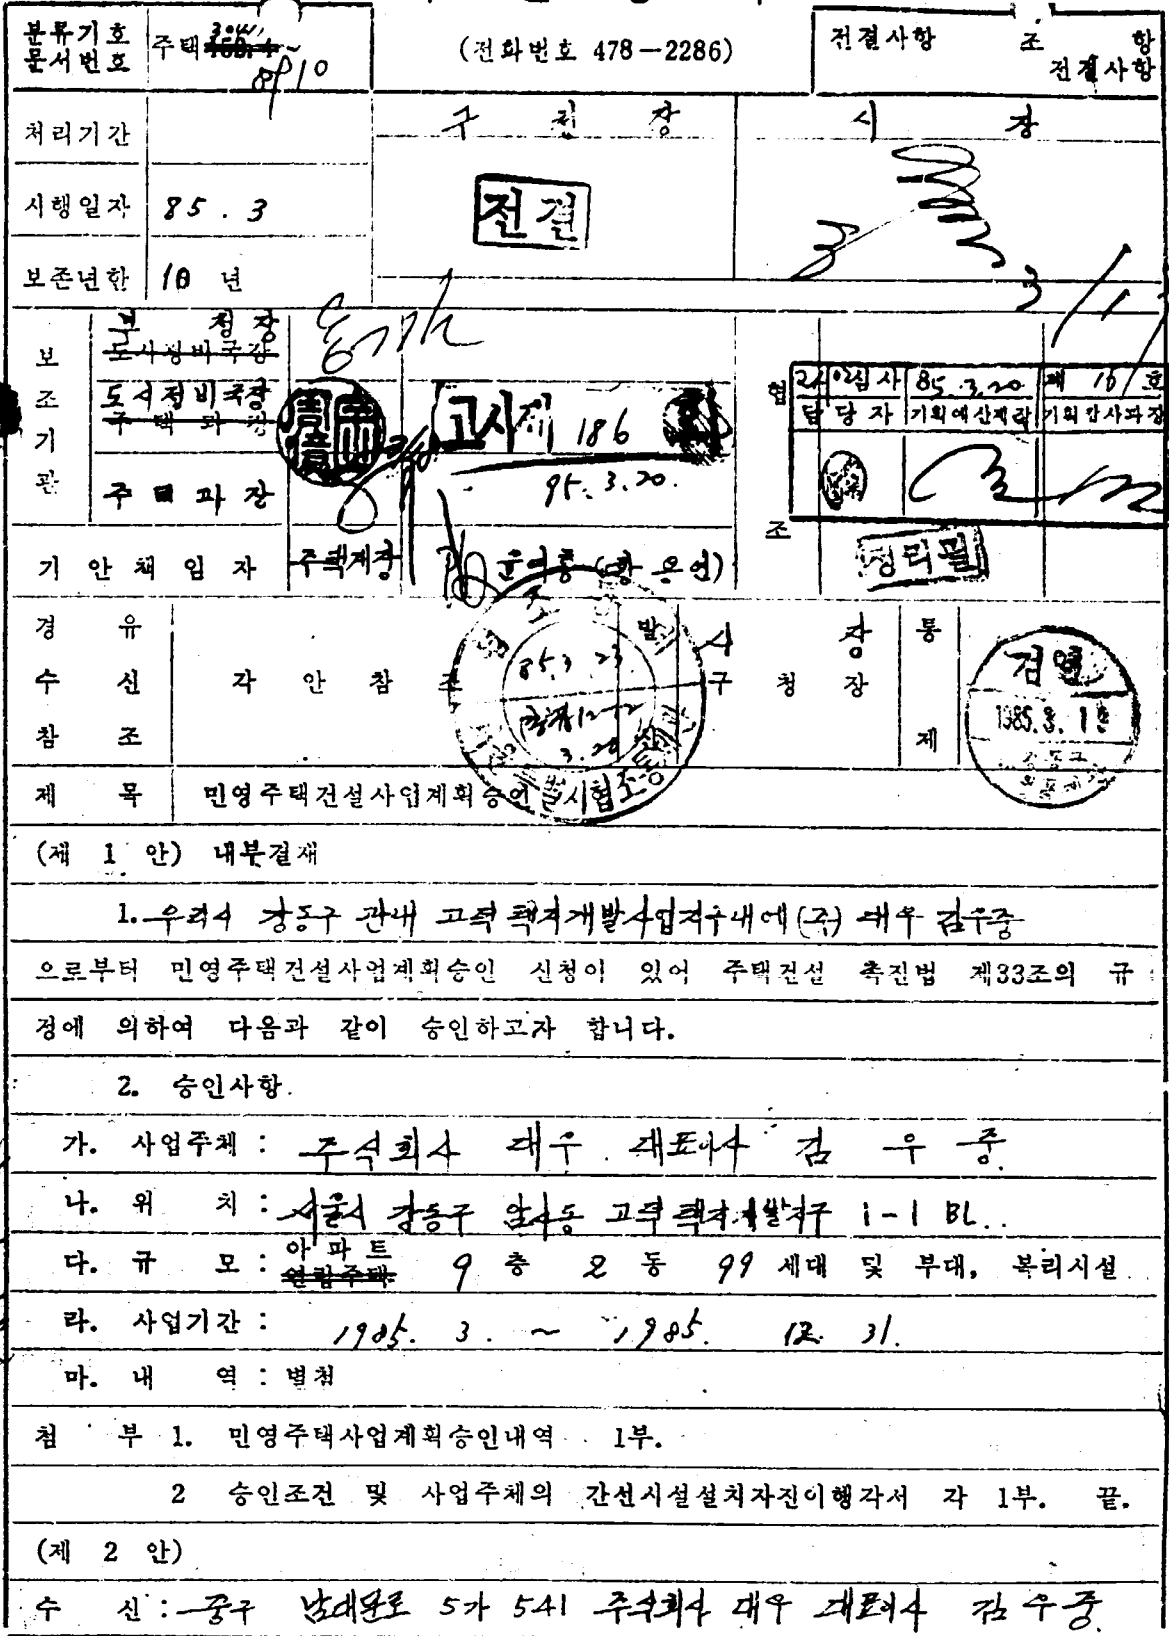 분류기호
문서번호
주택
(전화번호 478-2286)
전결사항 조 항
전결사항
처리기간
구 청 장
시 장
시행일자 85. 3
전결
보존년한 10 년
보 조 기 관
부 청장
도시정비국장
도시정비국장
주 택 과 장
주 택 과 장
협 조
심사 85.3.20 제 16 호
담 당 자 기획예산과장 기획감사과장
고시제 186
3.20.
정리필
기 안 책 임 자 주택계장
경 유
수 신 각 안 참 조
참 조
발 신
시 장
구 청 장
통 제
85.3.23
3.20
검열
1985.3.1
강동구
제 목 민영주택건설사업계획승인
(제 1 안) 내부결재
1. 우리시 강동구 관내 고덕 택지개발사업지구내에 (주) 대우 김우중
으로부터 민영주택건설사업계획승인 신청이 있어 주택건설 촉진법 제33조의 규
정에 의하여 다음과 같이 승인하고자 합니다.
2. 승인사항.
가. 사업주체 : 주식회사 대우 대표이사 김 우 중
나. 위 치 : 서울시 강동구 암사동 고덕 택지개발지구 1-1 BL.
다. 규 모 : 아파트 9 층 2 동 99 세대 및 부대, 복리시설
연립주택
라. 사업기간 : 1985. 3. ~ 1985. 12. 31.
마. 내 역 : 별첨
첨 부 1. 민영주택사업계획승인내역 1부.
2 승인조건 및 사업주체의 간선시설설치자진이행각서 각 1부. 끝.
(제 2 안)
수 신 : 중구 남대문로 5가 541 주식회사 대우 대표이사 김우중